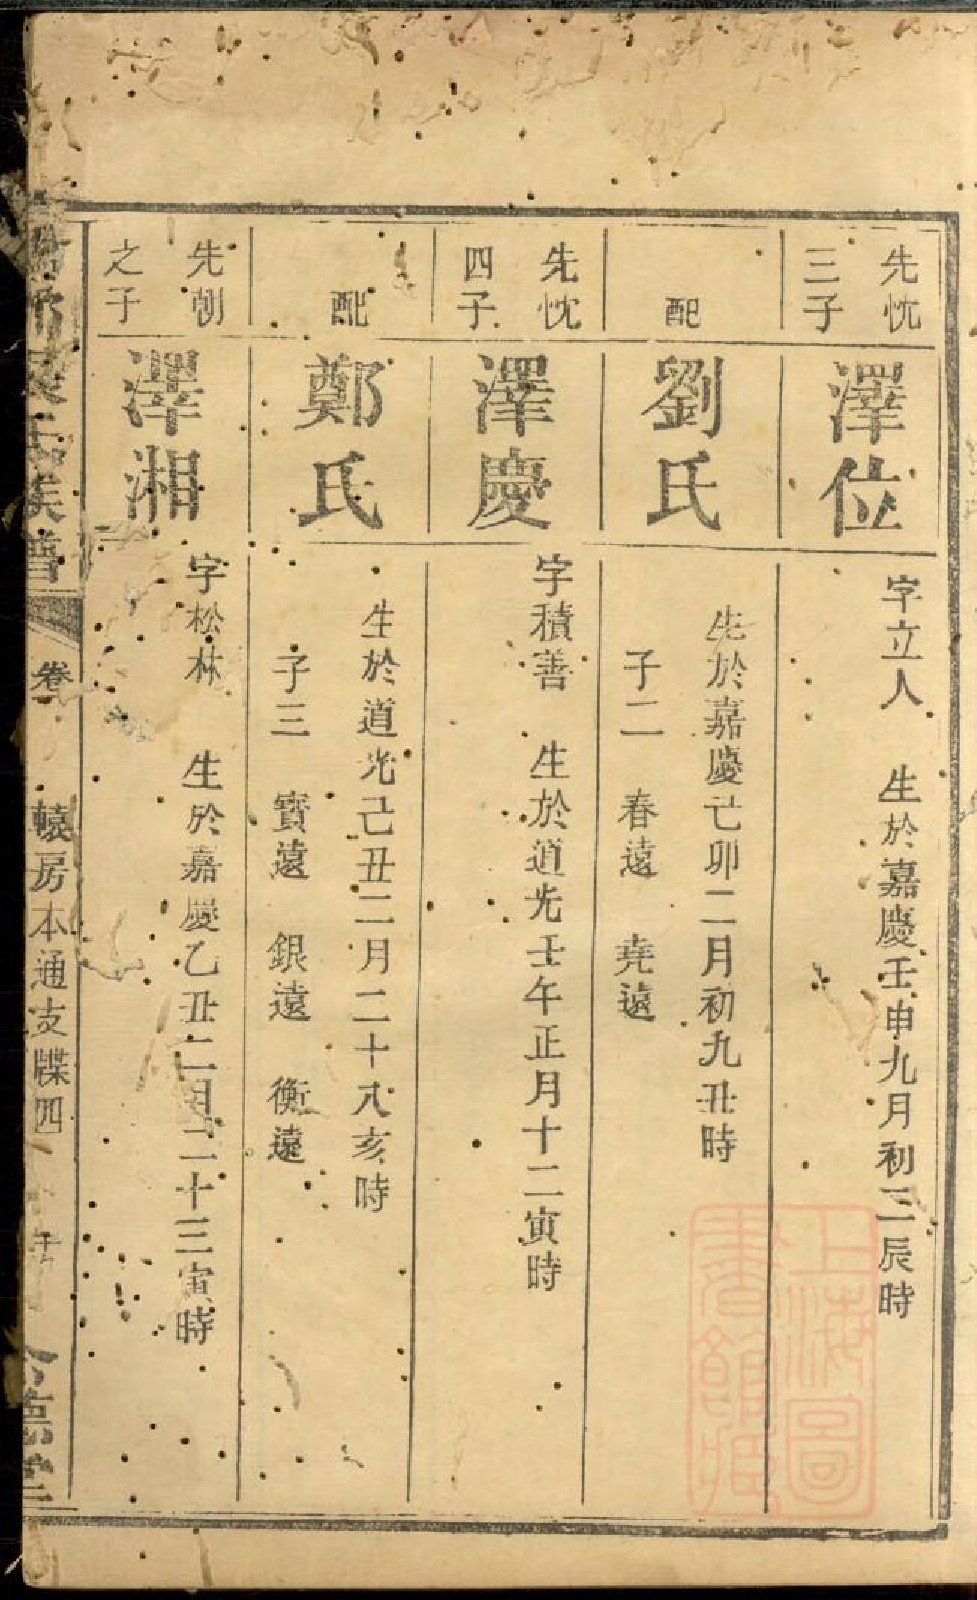 先忱
三子
澤位
字立人 生於嘉慶壬申九月初三辰時
配
劉氏
生於嘉慶己卯二月初九丑時
子二 春遠 堯遠
先忱
四子
澤慶
字積善 生於道光壬午正月十二寅時
配
鄭氏
生於道光己丑二月二十八亥時
子三 寶遠 銀遠 衡遠
先朝
之子
澤湘
字松林 生於嘉慶乙丑二月二十三寅時
氏族譜
卷
轅房本通支牒四
德堂
上海圖
書館藏